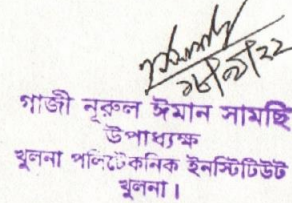 ১৮/০৯/২২
গাজী নূরুল ঈমান সামছি
উপাধ্যক্ষ
খুলনা পলিটেকনিক ইনস্টিটিউট
খুলনা।